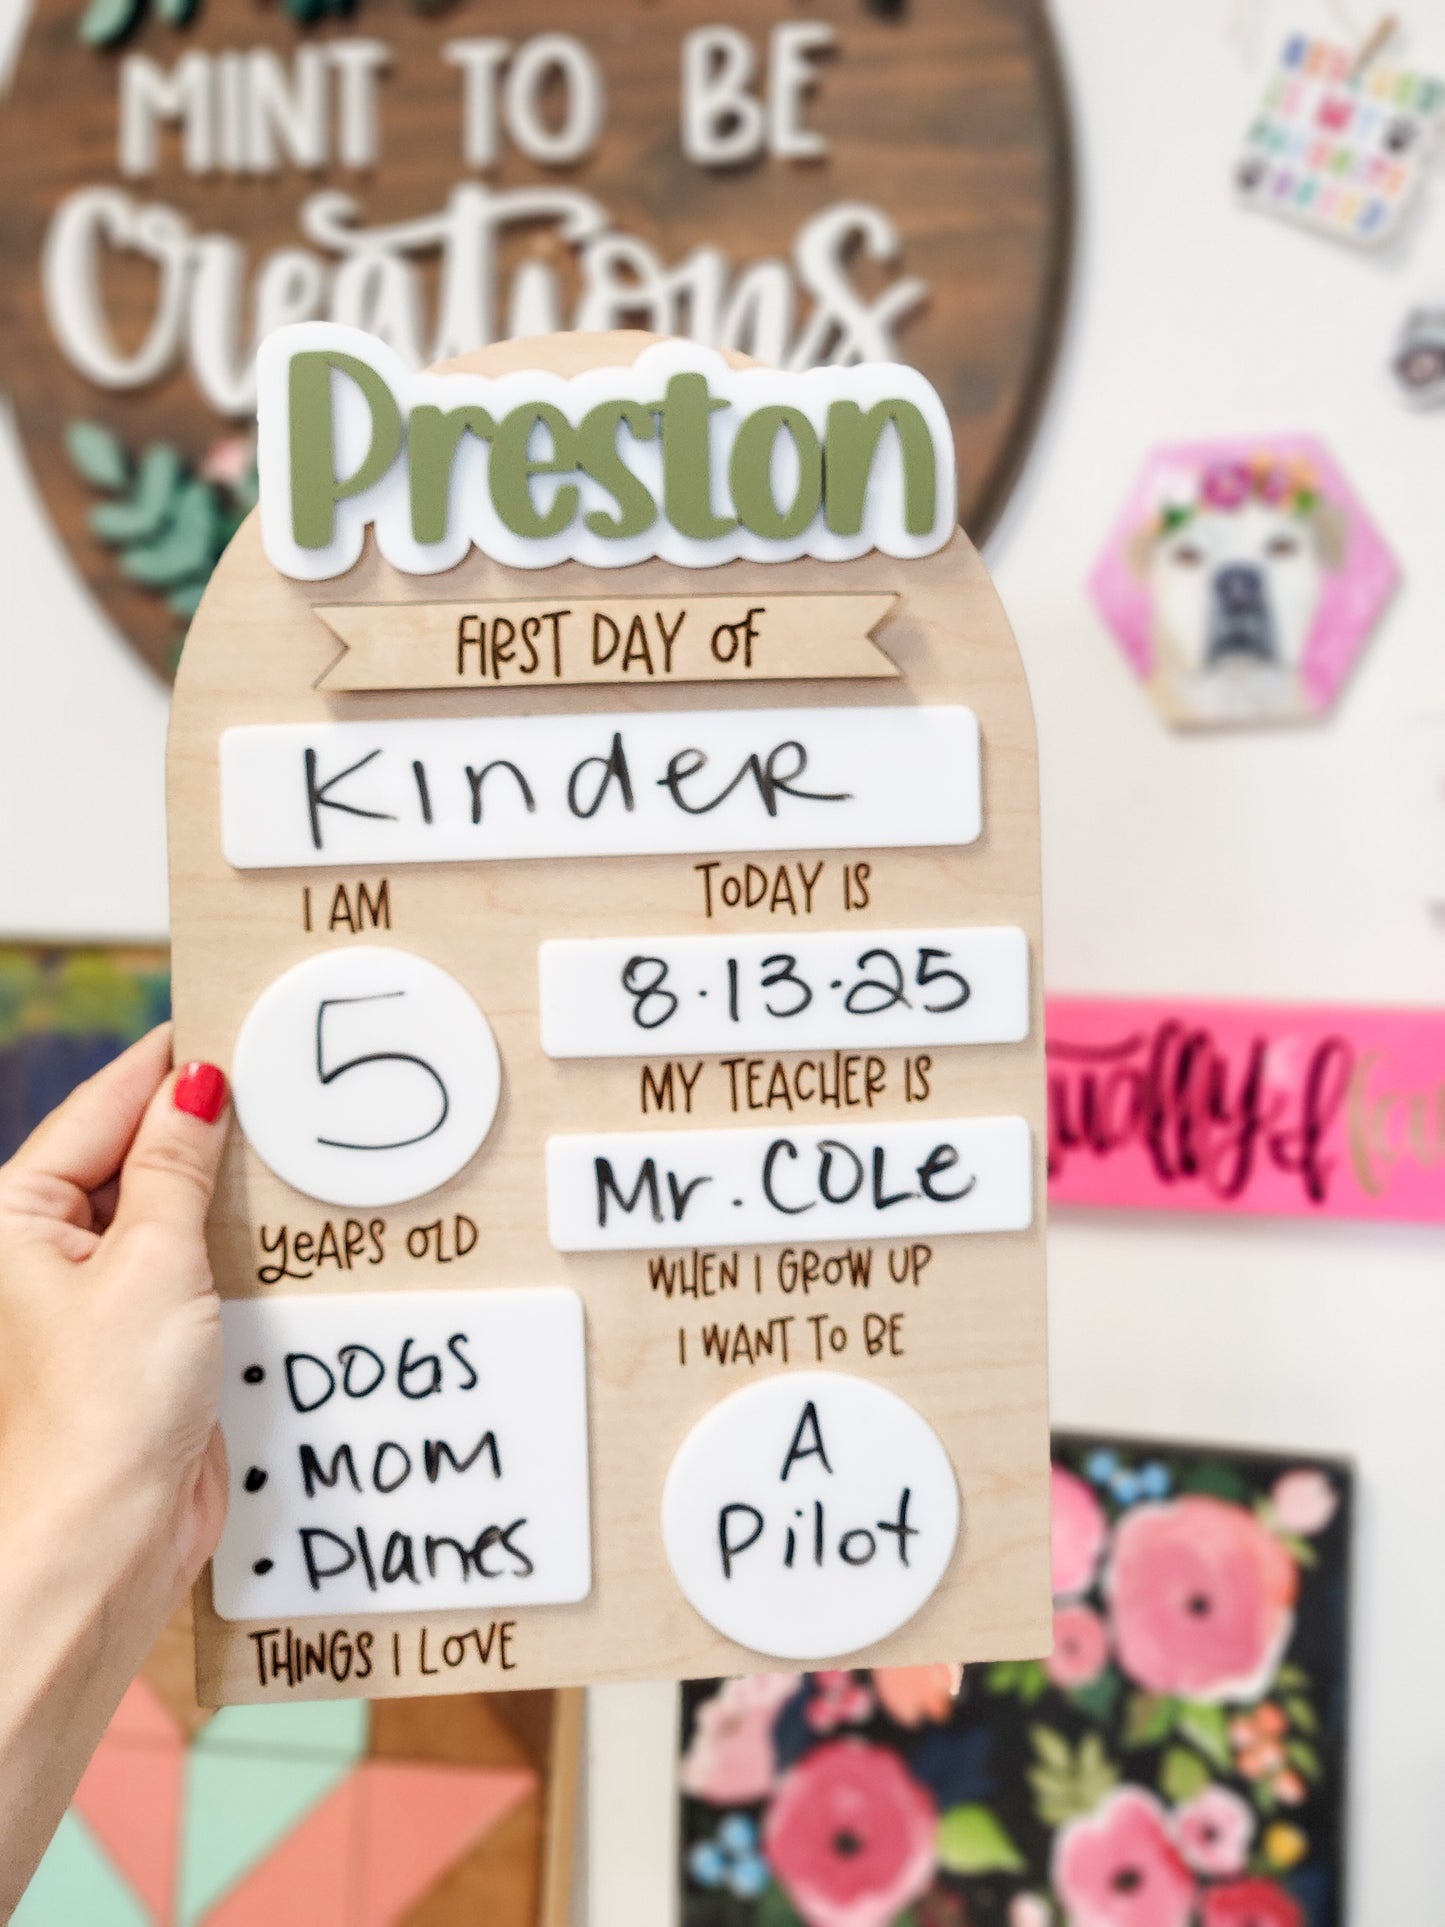 MINT TO BE
Creations
Preston
FIRST DAY OF
Kinder
I AM
5
YEARS OLD
TODAY IS
8.13.25
MY TEACHER IS
Mr. COLE
WHEN I GROW UP
I WANT TO BE
A
Pilot
• DOGS
• MOM
• Planes
THINGS I LOVE